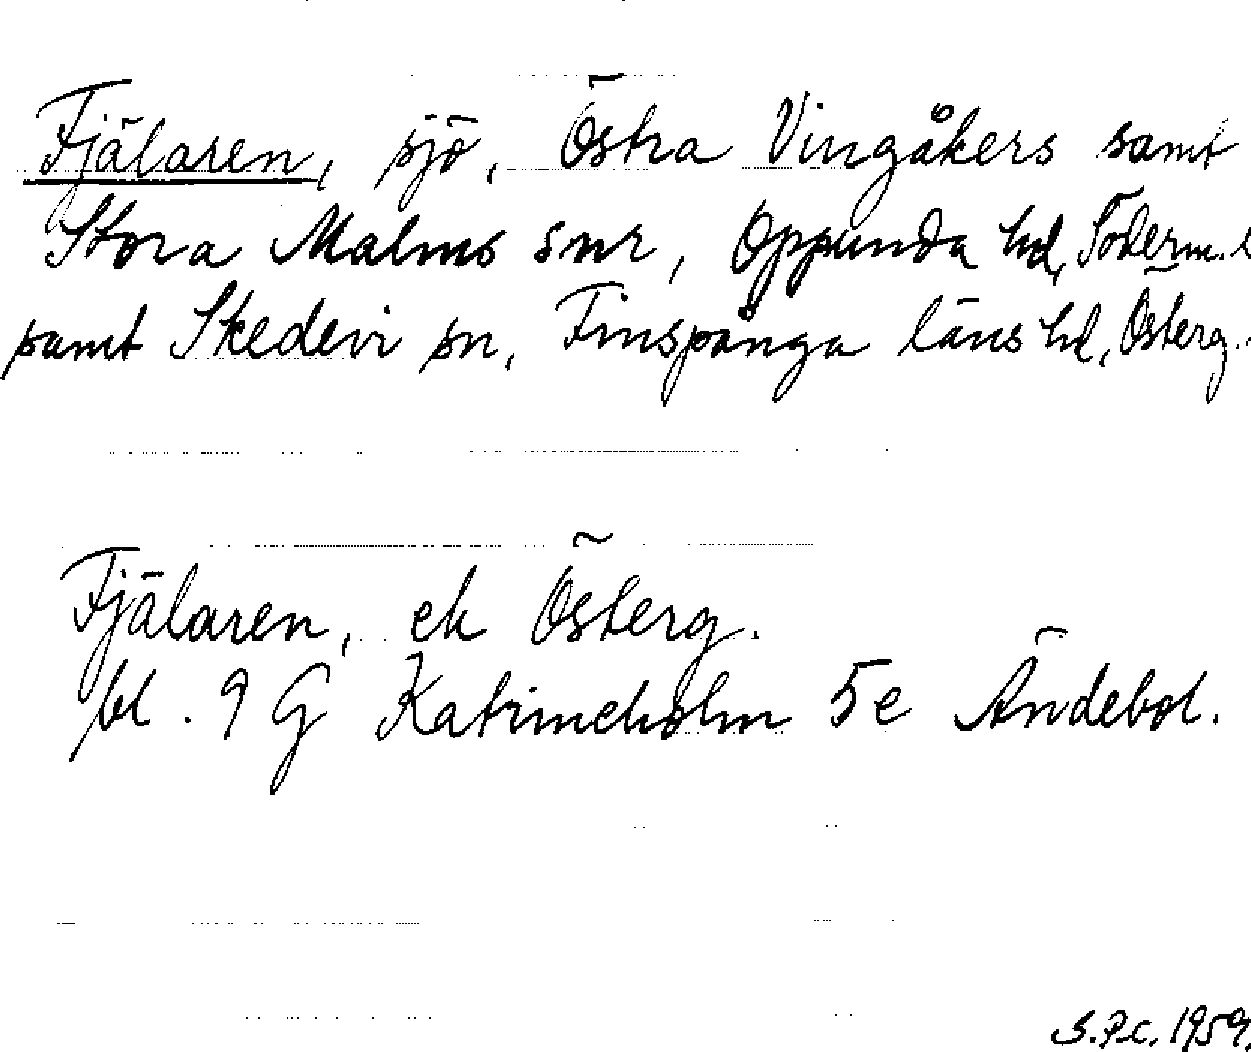 Fjälaren, sjö, Östra Vingåkers samt
Stora Malms snr, Oppunda hd, Söderm. l
samt Skedevi sn, Finspånga läns hd, Österg.
Fjälaren, ek Österg.
bl. 9 G Katrineholm 5e Ändebol.
S.P.C. 1959.